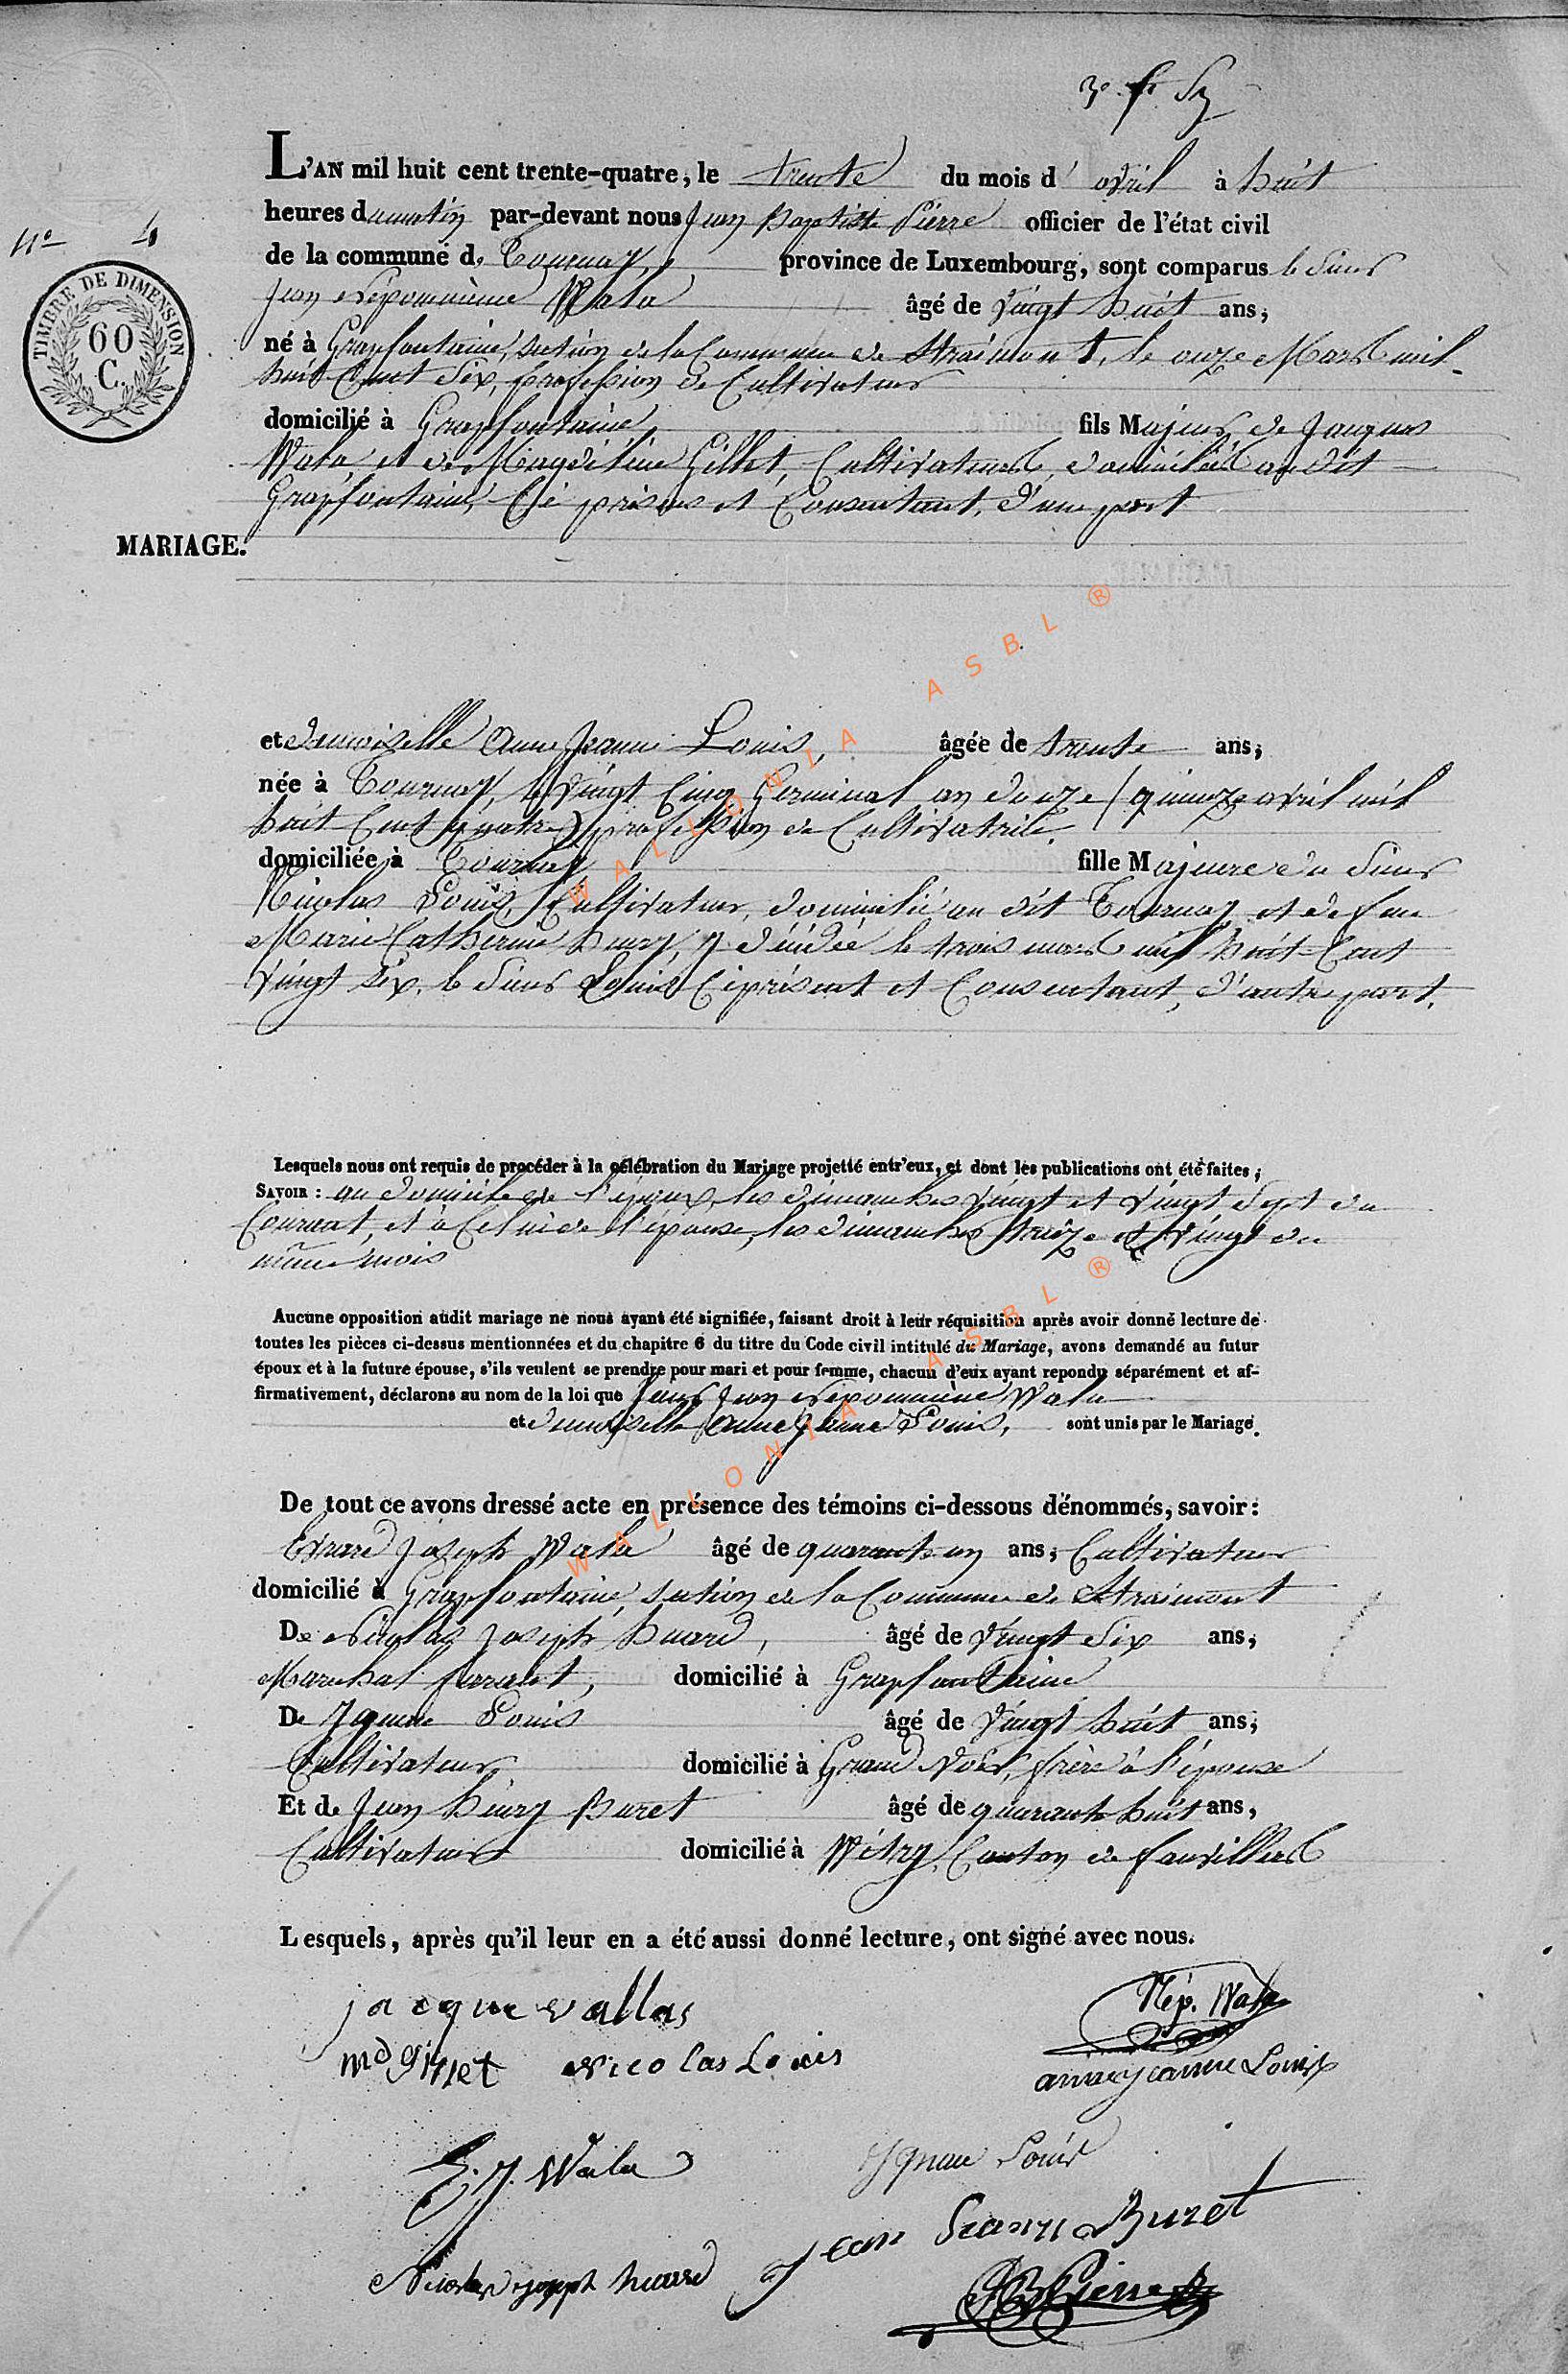 L'AN mil huit cent trente-quatre, le trente du mois d' avril à huit
heures du matin par-devant nous Jean Baptiste Pierre officier de l'état civil
N° 4
de la commune de Tournay, province de Luxembourg, sont comparus le Sieur
TIMBRE DE DIMENSION
60
C.
Jean Népomucène Wala âgé de vingt huit ans,
né à Grapfontaine, section de la Commune de Straimont, le onze Mars mil
huit Cent Six, profession de Cultivateur
domicilié à Grapfontaine fils Majeur de Jacques
Wala et de Magdeleine Gillet, Cultivateurs, domiciliés au dit
Grapfontaine, Ci présens et Consentant, d'une part
MARIAGE.
et demoiselle Anne Jeanne Louis, âgée de trente ans,
née à Tournay, le vingt Cinq Germinal an douze (quinze avril mil
huit Cent quatre) profession de Cultivatrice
domiciliée à Tournay fille Majeure du Sieur
Nicolas Louis, Cultivateur, domicilié au dit Tournay et de feue
Marie Catherine henry, y décédée le trois mars mil huit Cent
vingt six, le Sieur Louis Ci présent et Consentant, d'autre part.
Lesquels nous ont requis de procéder à la célébration du Mariage projetté entr'eux, et dont les publications ont été faites;
SAVOIR : au domicile de l'époux, les dimanches vingt et vingt Sept du
Courant, et à Celui de l'épouse, les dimanches treize et vingt du
même mois
Aucune opposition audit mariage ne nous ayant été signifiée, faisant droit à leur réquisition après avoir donné lecture de
toutes les pièces ci-dessus mentionnées et du chapitre 6 du titre du Code civil intitulé du Mariage, avons demandé au futur
époux et à la future épouse, s'ils veulent se prendre pour mari et pour femme, chacun d'eux ayant repondu séparément et af-
firmativement, déclarons au nom de la loi que Jean Népomucène Wala
et demoiselle Anne Jeanne Louis, sont unis par le Mariage.
De tout ce avons dressé acte en présence des témoins ci-dessous dénommés, savoir:
Evrard Joseph Wala âgé de quarante un ans, Cultivateur
domicilié à Grapfontaine, section de la Commune de Straimont
De Nicolas Joseph huard, âgé de vingt Six ans,
Marechal ferrant, domicilié à Grapfontaine
De Ignace Louis âgé de vingt huit ans,
Cultivateur domicilié à Grand Voir, frère à l'épouse
Et de Jean henry Buret âgé de quarante huit ans,
Cultivateur domicilié à Witry, Canton de fauvillers
Lesquels, après qu'il leur en a été aussi donné lecture, ont signé avec nous.
jacque vallas Nép. Wala
md gillet Nicolas Louis anne jeanne Louis
E. J. Wala Ignace Louis
Jean henry Buret
Nicolas joseph huard
JB Pierre
WALLONIA ASBL ®
WALLONIA ASBL ®